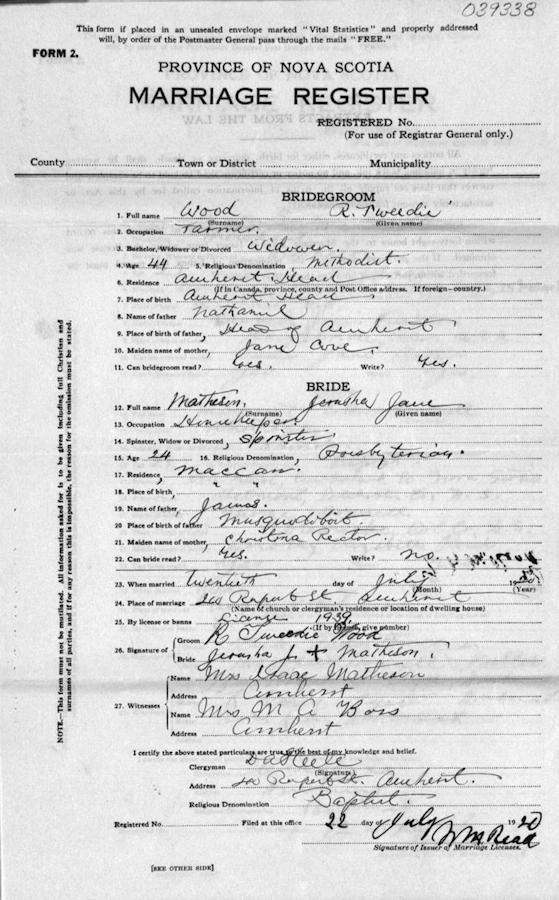 039338
This form if placed in an unsealed envelope marked "Vital Statistics" and properly addressed
will, by order of the Postmaster General pass through the mails "FREE."
FORM 2.
PROVINCE OF NOVA SCOTIA
MARRIAGE REGISTER
REGISTERED No.
(For use of Registrar General only.)
County Town or District Municipality
BRIDEGROOM
1. Full name Wood R. Tweedie
(Surname) (Given name)
2. Occupation Farmer
3. Bachelor, Widower or Divorced Widower
4. Age 44 5. Religious Denomination, Methodist.
6. Residence Amherst Head
(If in Canada, province, county and Post Office address. If foreign—country.)
7. Place of birth Amherst Head
8. Name of father Nathaniel
9. Place of birth of father, Head of Amherst
10. Maiden name of mother, Jane Cove
11. Can bridegroom read? Yes. Write? Yes.
BRIDE
12. Full name Matheson, Jerusha Jane
(Surname) (Given name)
13. Occupation Housekeeper
14. Spinster, Widow or Divorced, Spinster
15. Age 24 16. Religious Denomination, Presbyterian.
17. Residence, Maccan.
18. Place of birth, " "
19. Name of father, James.
20. Place of birth of father Musquodoboit.
21. Maiden name of mother, Christina Rector
22. Can bride read? Yes. Write? No.
23. When married twentieth day of July 1920
(Month) (Year)
24. Place of marriage 20 Rupert St Amherst
(Name of church or clergyman's residence or location of dwelling house)
25. By license or banns License 1939
(If by license, give number)
26. Signature of Groom R Tweedie Wood
Bride Jerusha J. + Matheson.
27. Witnesses
Name Mrs Isaac Matheson
Address Amherst
Name Mrs M A Boss
Address Amherst
I certify the above stated particulars are true to the best of my knowledge and belief.
Clergyman D A Steele
(Signature)
Address Rupert St. Amherst.
Religious Denomination Baptist.
Registered No. Filed at this office 22 day of July 1920
Signature of Issuer of Marriage Licenses.
[SEE OTHER SIDE]
NOTE.—This form must not be mutilated. All information asked for is to be given including full Christian and
surnames of all parties, and if for any reason this is impossible, the reason for the omission must be stated.